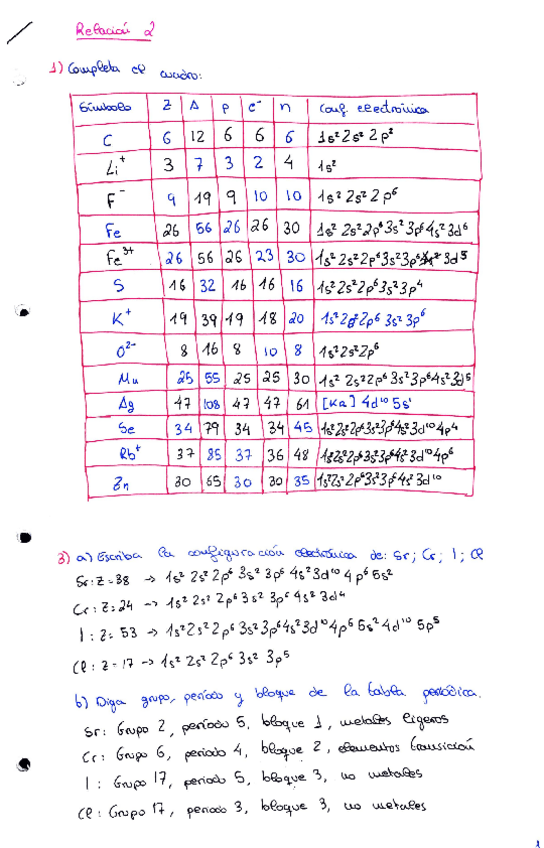 Relación 2
1) Completa el cuadro:
Símbolo Z A p e⁻ n Conf. electrónica
C 6 12 6 6 6 1s² 2s² 2p²
Li⁺ 3 7 3 2 4 1s²
F⁻ 9 19 9 10 10 1s² 2s² 2p⁶
Fe 26 56 26 26 30 1s² 2s² 2p⁶ 3s² 3p⁶ 4s² 3d⁶
Fe³⁺ 26 56 26 23 30 1s² 2s² 2p⁶ 3s² 3p⁶ 3d⁵
S 16 32 16 16 16 1s² 2s² 2p⁶ 3s² 3p⁴
K⁺ 19 39 19 18 20 1s² 2s² 2p⁶ 3s² 3p⁶
O²⁻ 8 16 8 10 8 1s² 2s² 2p⁶
Mn 25 55 25 25 30 1s² 2s² 2p⁶ 3s² 3p⁶ 4s² 3d⁵
Ag 47 108 47 47 61 [Kr] 4d¹⁰ 5s¹
Se 34 79 34 34 45 1s² 2s² 2p⁶ 3s² 3p⁶ 4s² 3d¹⁰ 4p⁴
Rb⁺ 37 85 37 36 48 1s² 2s² 2p⁶ 3s² 3p⁶ 4s² 3d¹⁰ 4p⁶
Zn 30 65 30 30 35 1s² 2s² 2p⁶ 3s² 3p⁶ 4s² 3d¹⁰
3) a) Escriba la configuración electrónica de: Sr; Cr; I; Cl
Sr: Z=38 → 1s² 2s² 2p⁶ 3s² 3p⁶ 4s² 3d¹⁰ 4p⁶ 5s²
Cr: Z=24 → 1s² 2s² 2p⁶ 3s² 3p⁶ 4s² 3d⁴
I: Z=53 → 1s² 2s² 2p⁶ 3s² 3p⁶ 4s² 3d¹⁰ 4p⁶ 5s² 4d¹⁰ 5p⁵
Cl: Z=17 → 1s² 2s² 2p⁶ 3s² 3p⁵
b) Diga grupo, período y bloque de la tabla periódica.
Sr: Grupo 2, período 5, bloque 1, metales ligeros
Cr: Grupo 6, período 4, bloque 2, elementos transición
I: Grupo 17, período 5, bloque 3, no metales
Cl: Grupo 17, período 3, bloque 3, no metales
1